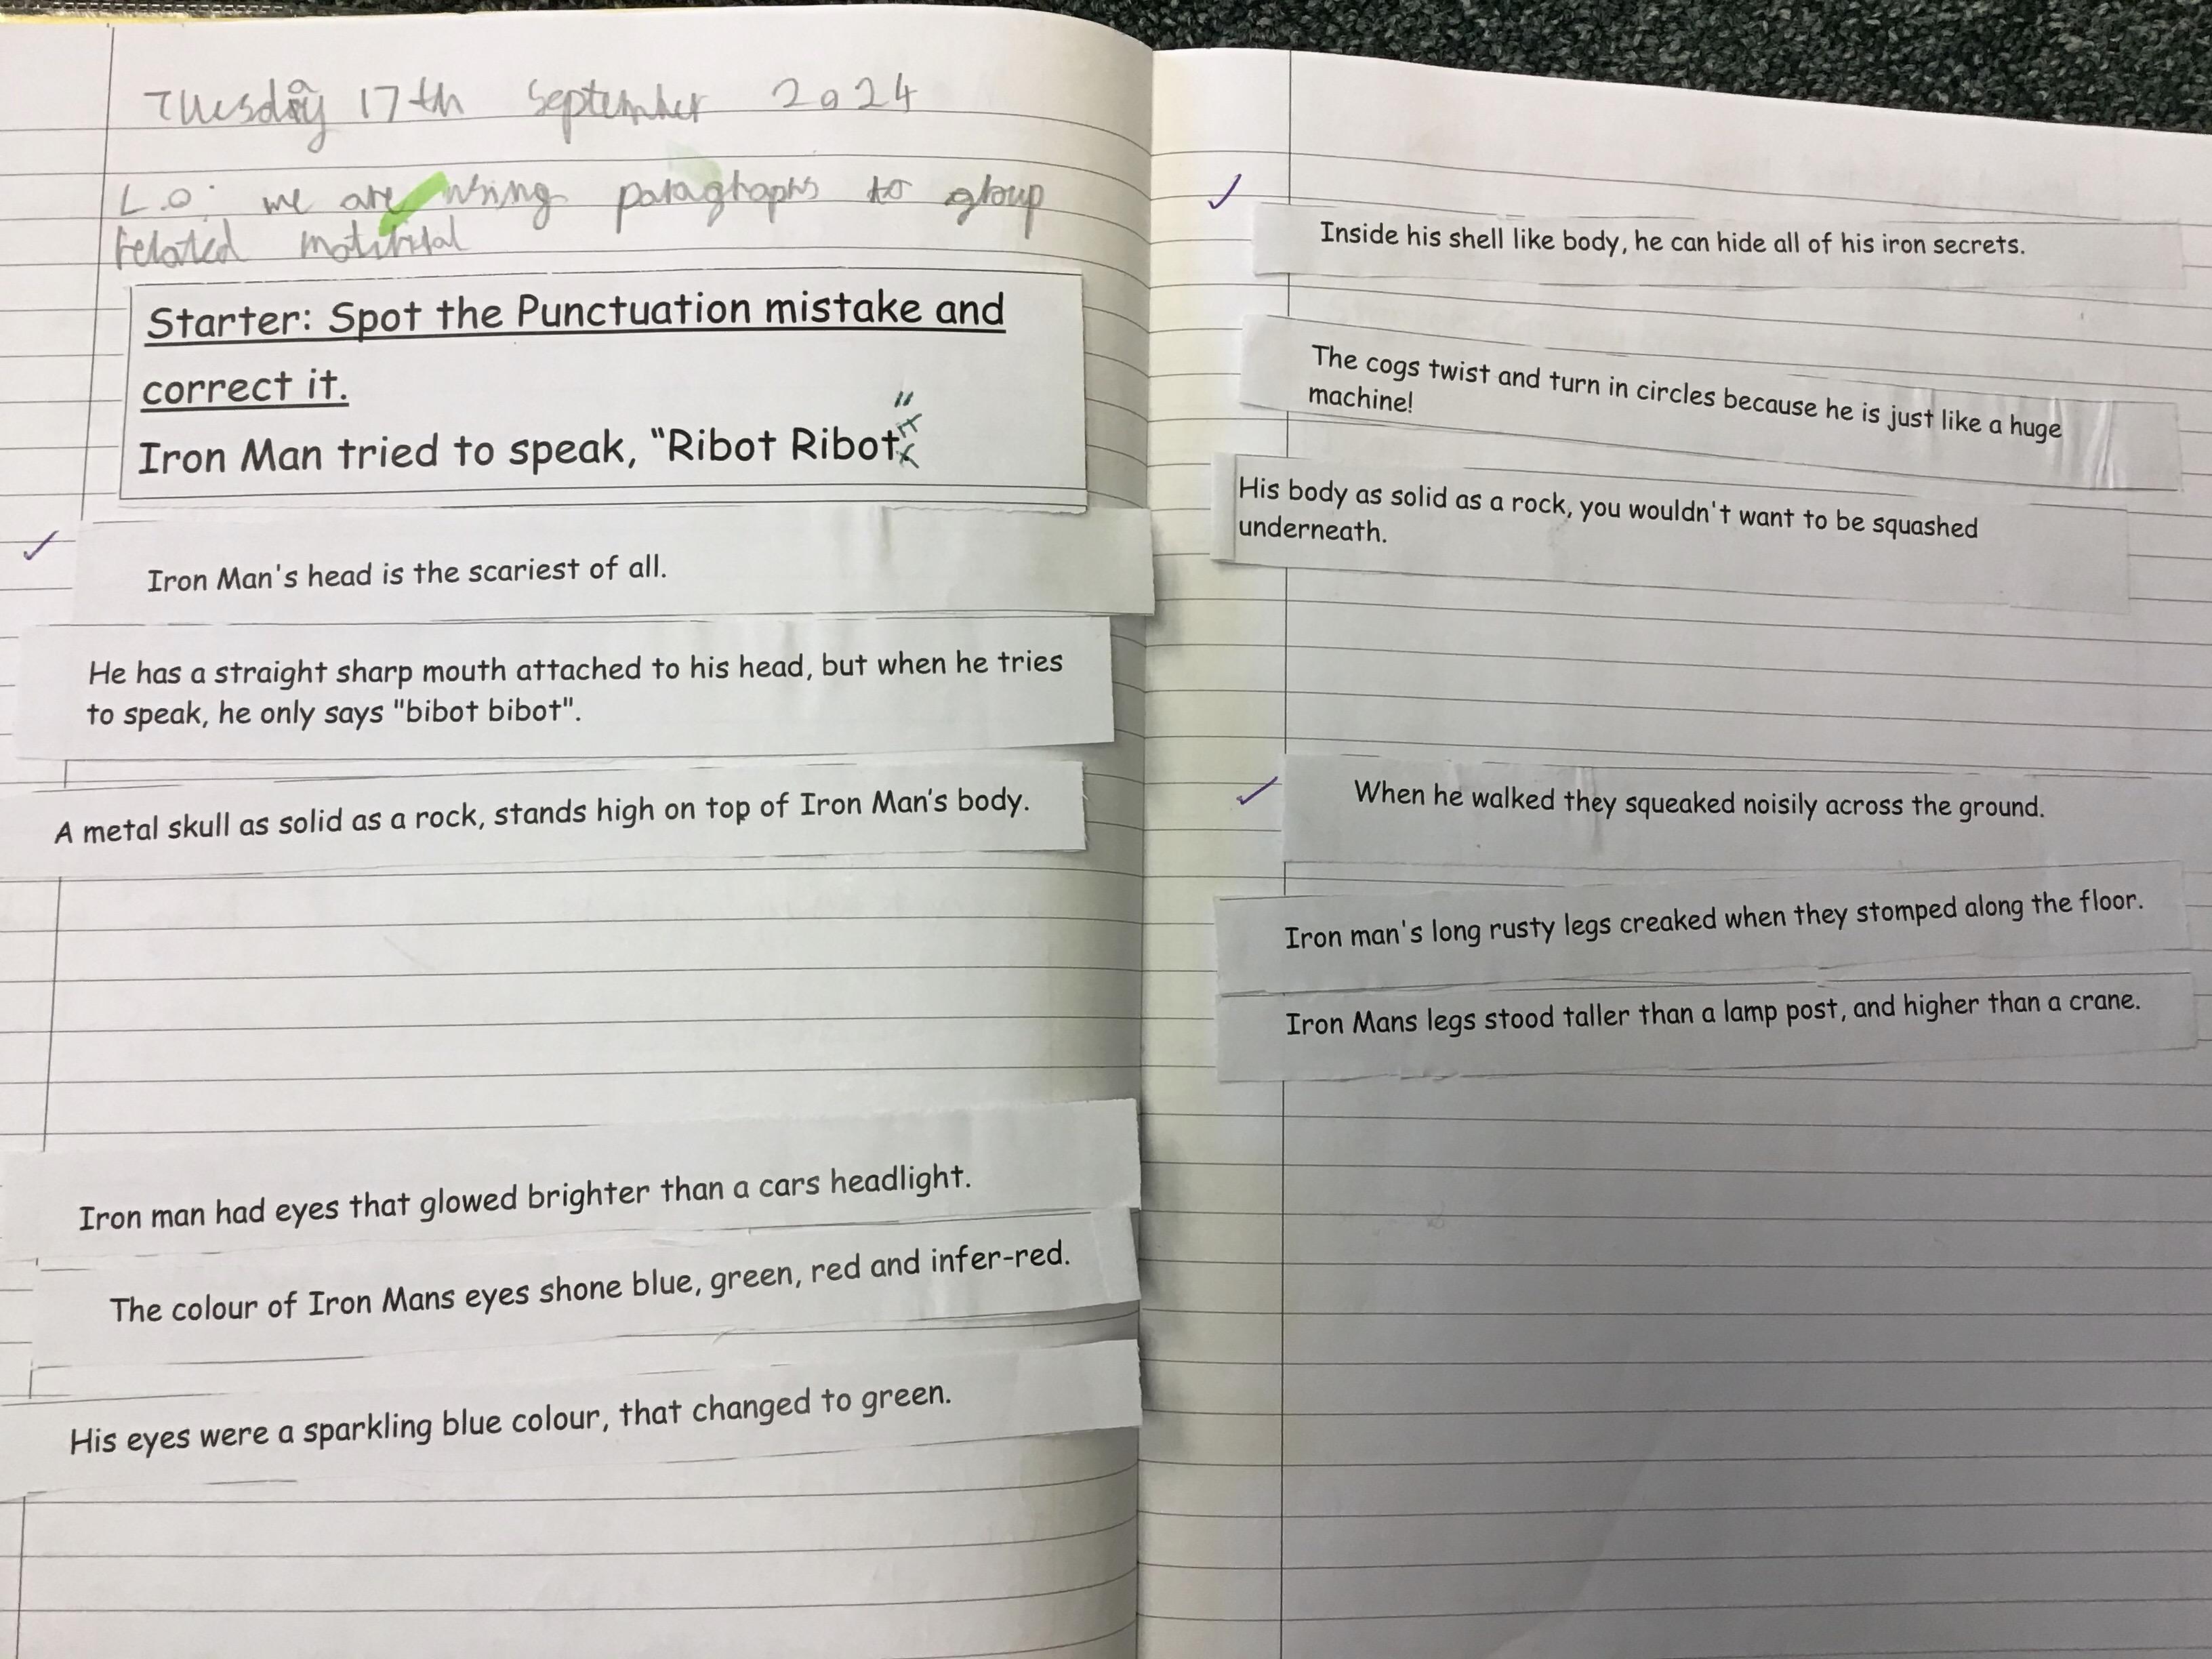 Tuesday 17th September 2024
L.O: we are using paraghaphs to gloup
related
Starter: Spot the Punctuation mistake and
correct it.
"
Iron Man tried to speak, "Ribot Ribot
Iron Man's head is the scariest of all.
He has a straight sharp mouth attached to his head, but when he tries
to speak, he only says "bibot bibot".
A metal skull as solid as a rock, stands high on top of Iron Man's body.
Iron man had eyes that glowed brighter than a cars headlight.
The colour of Iron Mans eyes shone blue, green, red and infer-red.
His eyes were a sparkling blue colour, that changed to green.
Inside his shell like body, he can hide all of his iron secrets.
The cogs twist and turn in circles because he is just like a huge
machine!
His body as solid as a rock, you wouldn't want to be squashed
underneath.
When he walked they squeaked noisily across the ground.
Iron man's long rusty legs creaked when they stomped along the floor.
Iron Mans legs stood taller than a lamp post, and higher than a crane.